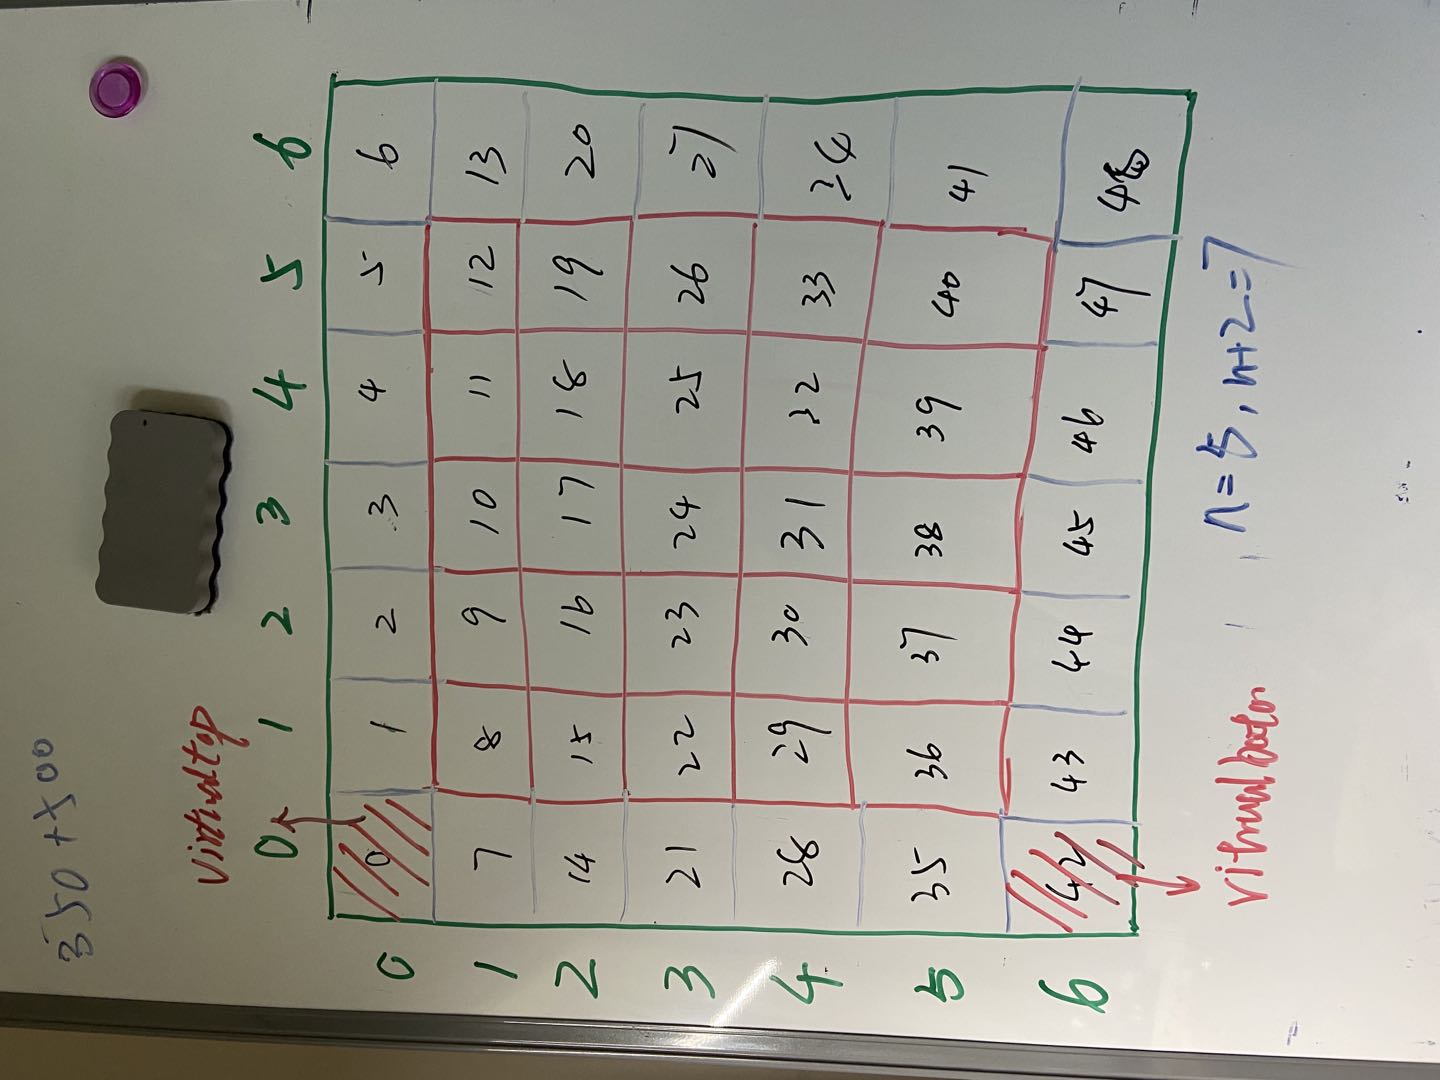 350 + 500
virtual top
0 1 2 3 4 5 6
0 0 1 2 3 4 5 6
1 7 8 9 10 11 12 13
2 14 15 16 17 18 19 20
3 21 22 23 24 25 26 27
4 28 29 30 31 32 33 34
5 35 36 37 38 39 40 41
6 42 43 44 45 46 47 48
n=5, n+2=7